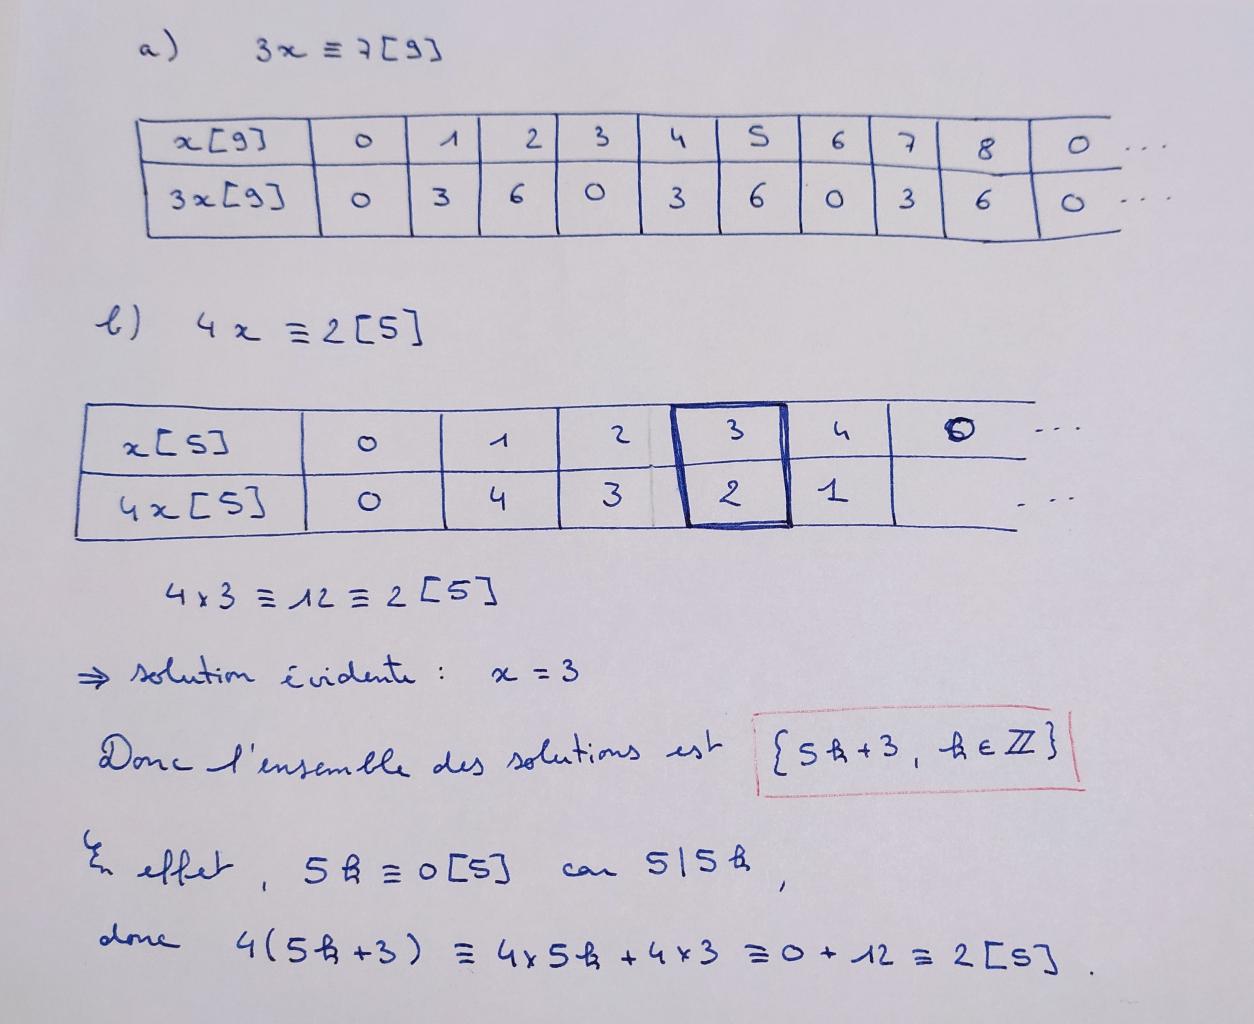 a) 3x ≡ 7[9]
x[9] 0 1 2 3 4 5 6 7 8 0 ...
3x[9] 0 3 6 0 3 6 0 3 6 0 ...
b) 4x ≡ 2[5]
x[5] 0 1 2 3 4 0 ...
4x[5] 0 4 3 2 1 ...
4×3 ≡ 12 ≡ 2 [5]
⇒ solution évidente : x = 3
Donc l'ensemble des solutions est {5k+3, k∈ℤ}
En effet, 5k ≡ 0[5] car 5|5k,
donc 4(5k+3) ≡ 4×5k + 4×3 ≡ 0 + 12 ≡ 2[5].